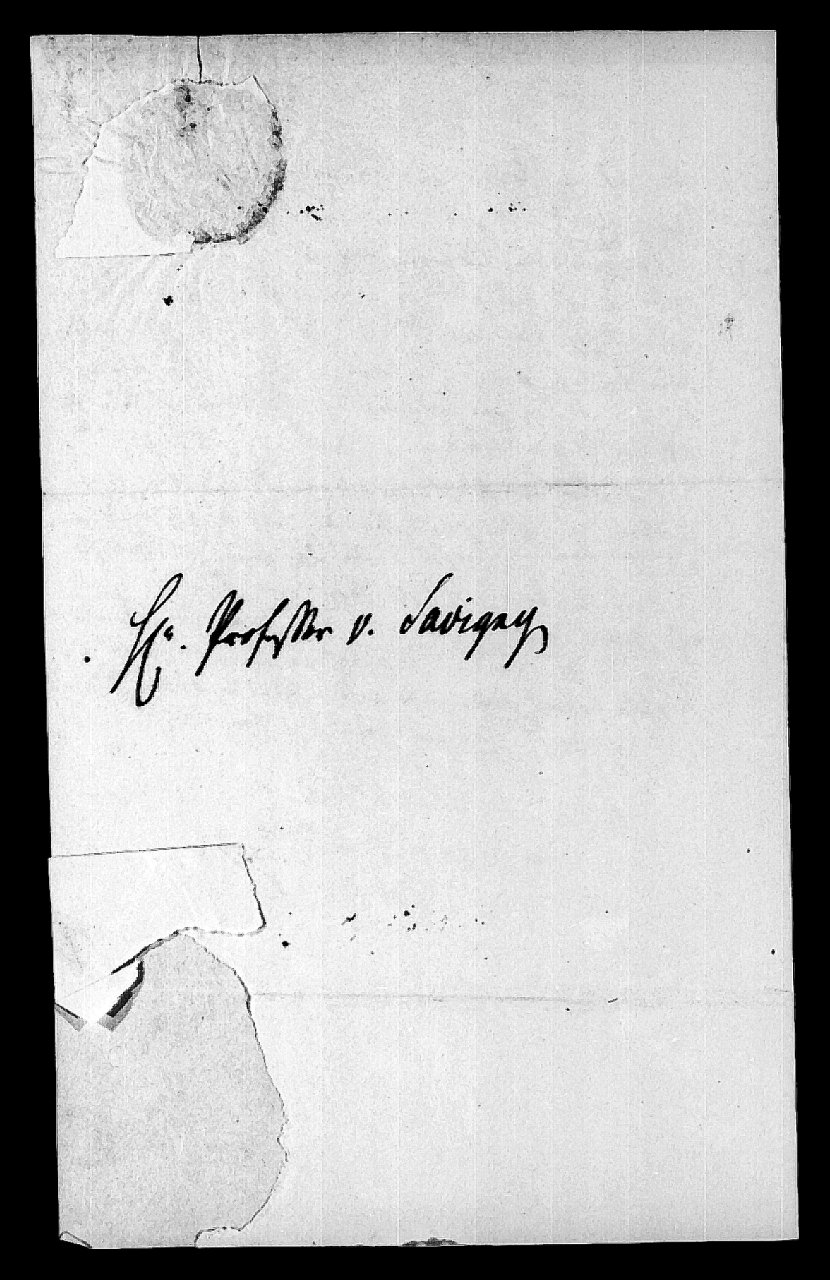 Hr. Professor v. Savigny